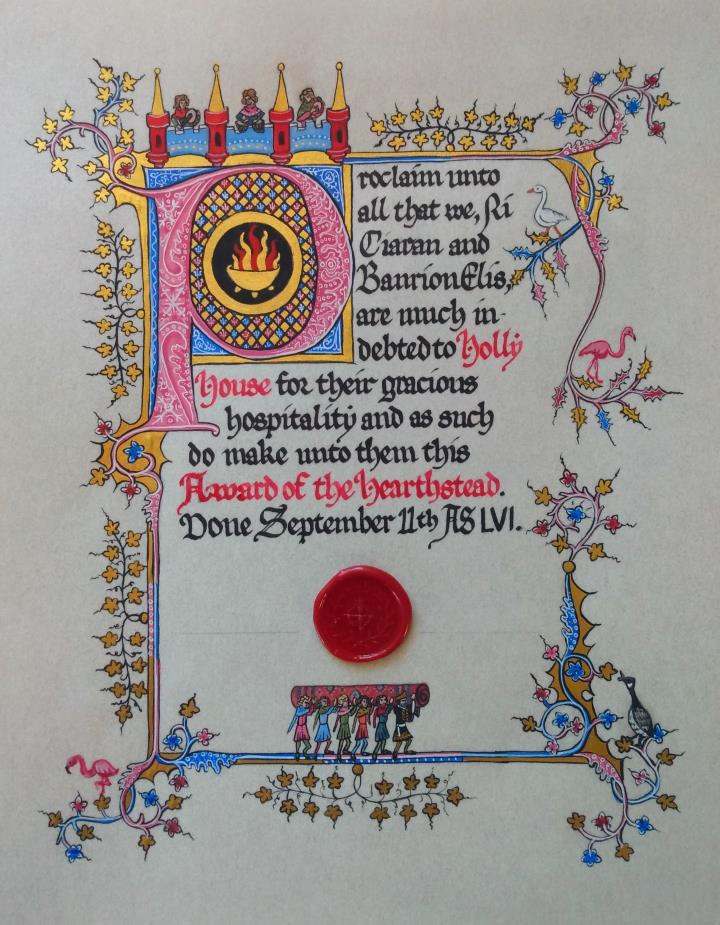 Proclaim unto
all that we, Ri
Ciaran and
Banrion Elis,
are much in-
debted to Holly
House for their gracious
hospitality and as such
do make unto them this
Award of the Hearthstead.
Done September 11th AS LVI.